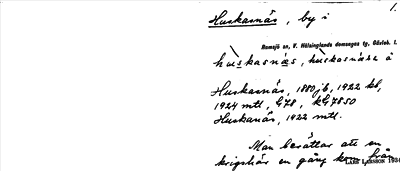 1.
Huskasnäs, by i
Ramsjö sn, V. Hälsinglands domsagas tg, Gävleb. l.
hùskasnäs, hùskosnása å
Huskasnäs, 1880 jb, 1922 kb,
1924 mtl, G78, kG7850
Huskanäs, 1922 mtl.
Man berättar att en
krigshär en gång kom från
LARS LARSSON 1934